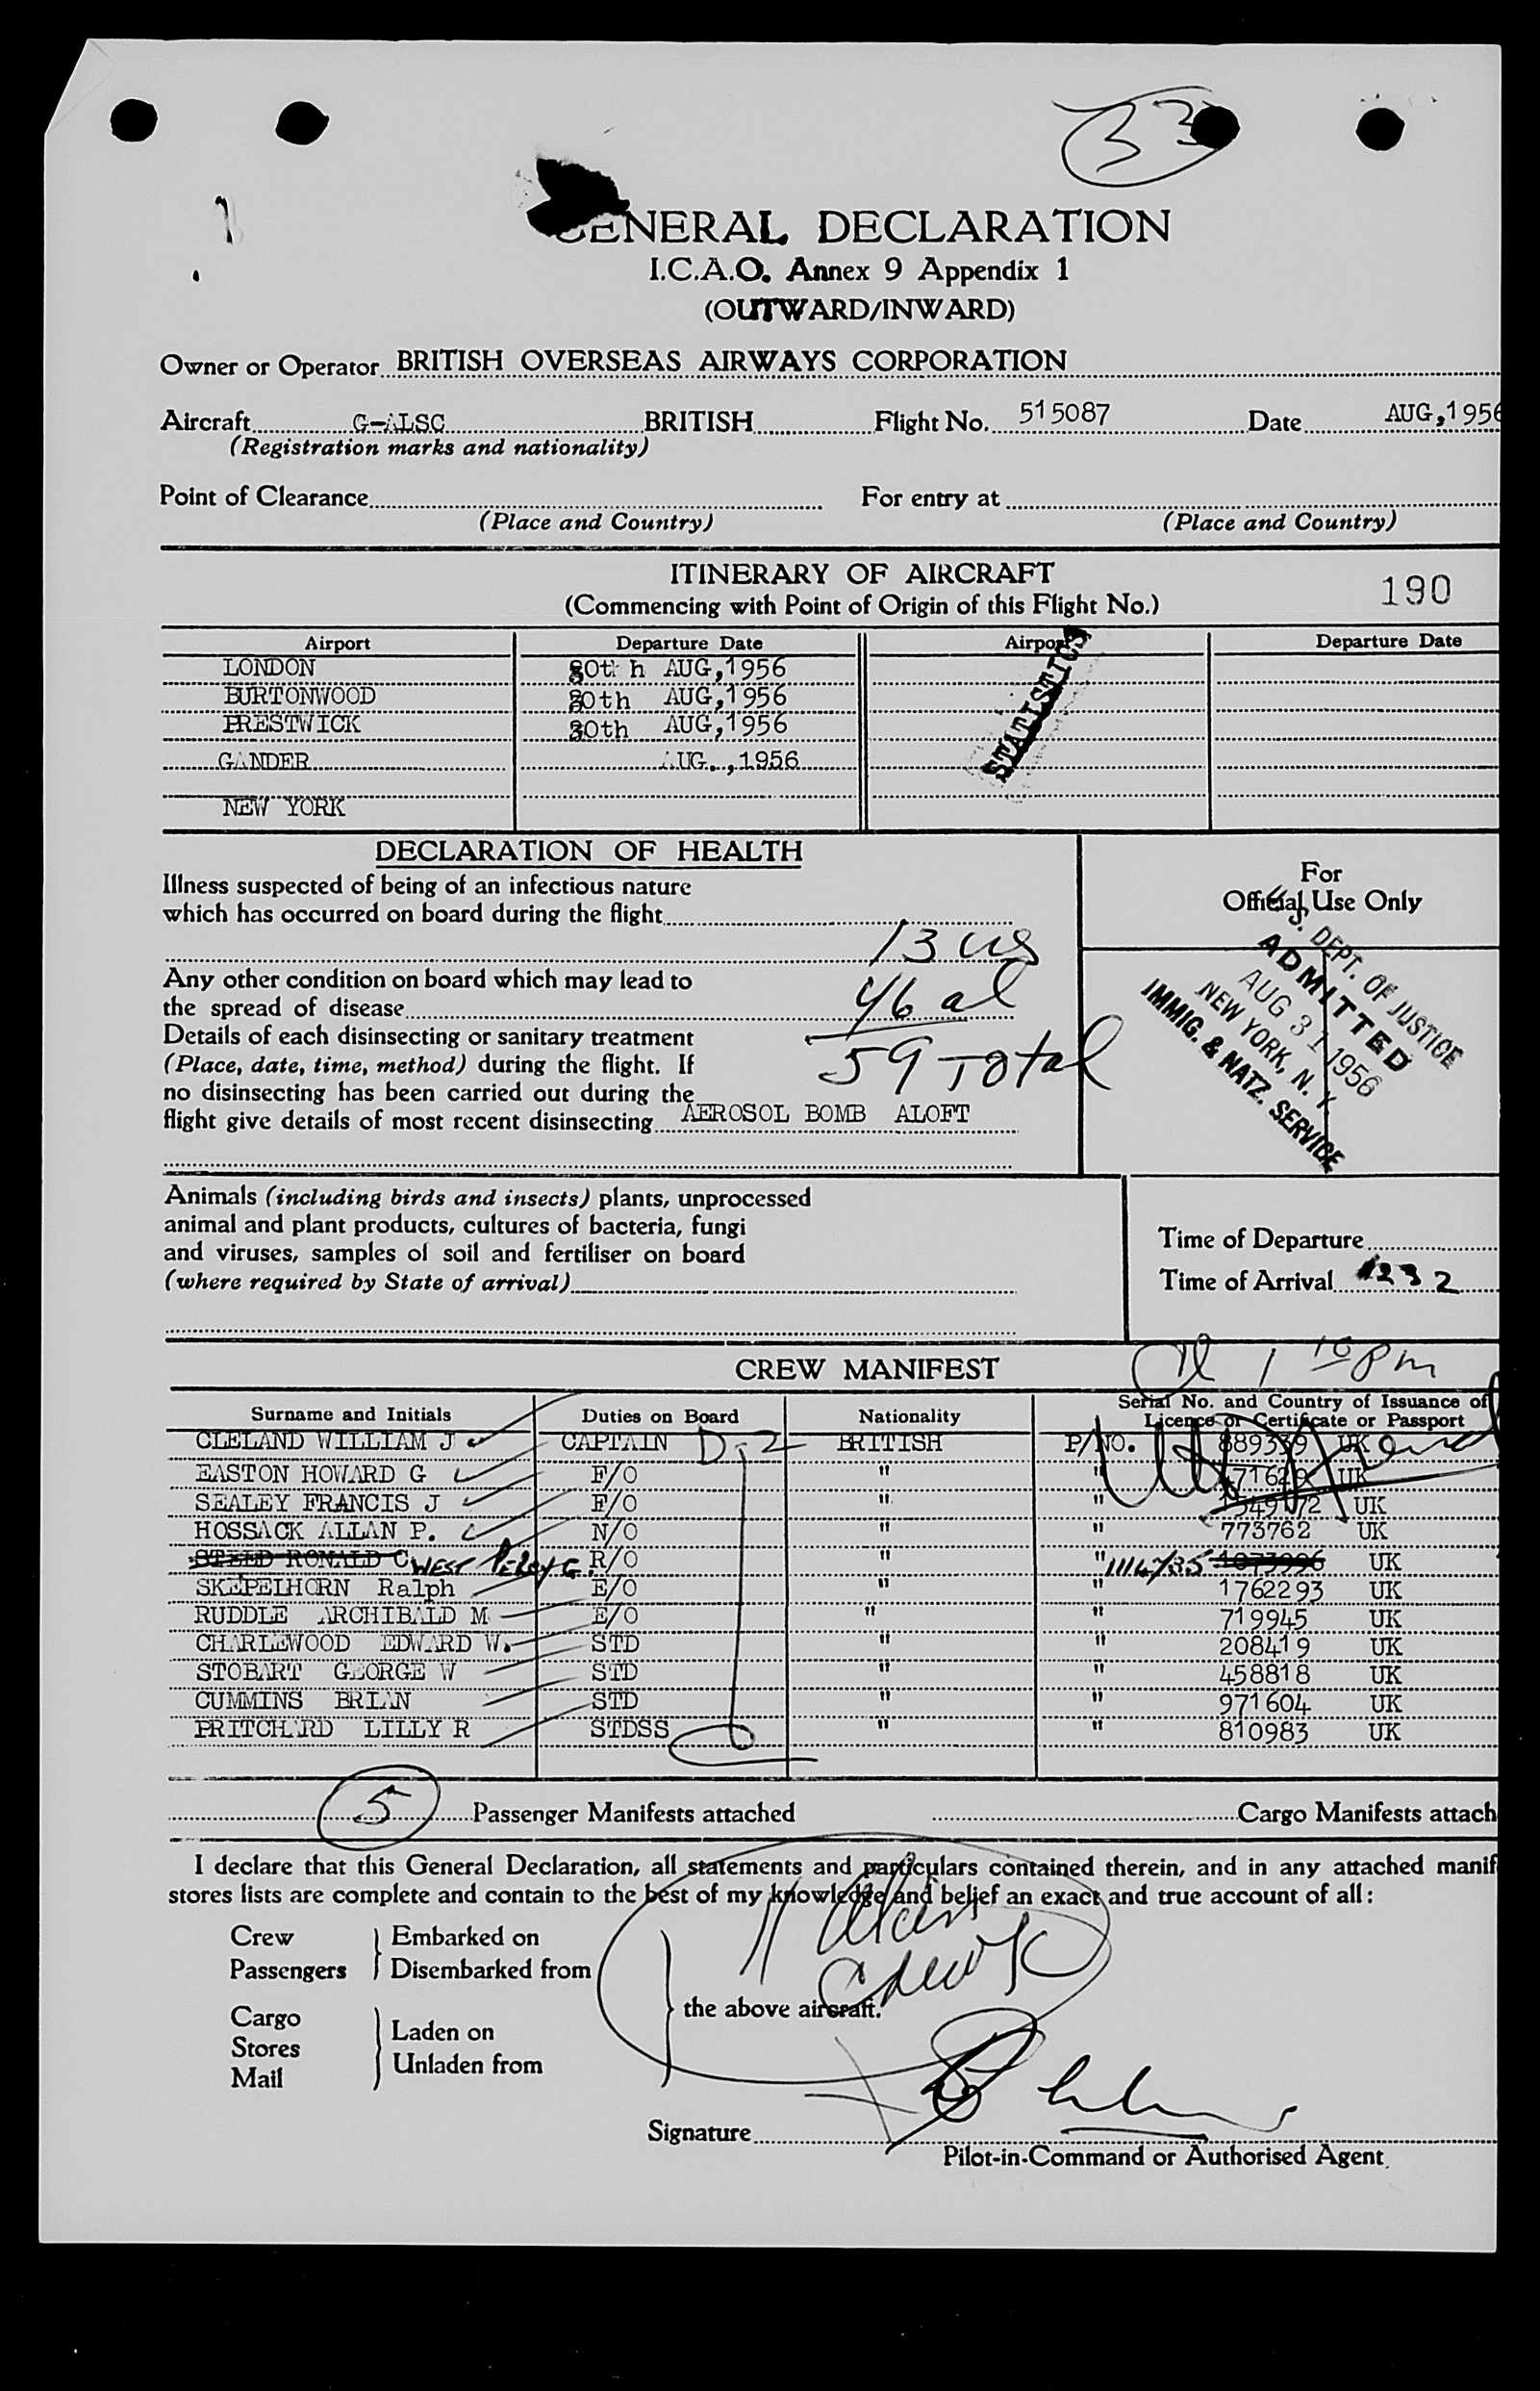 33
GENERAL DECLARATION
I.C.A.O. Annex 9 Appendix 1
(OUTWARD/INWARD)
Owner or Operator BRITISH OVERSEAS AIRWAYS CORPORATION
Aircraft G-ALSC BRITISH Flight No. 515087 Date AUG,1956
(Registration marks and nationality)
Point of Clearance For entry at
(Place and Country) (Place and Country)
ITINERARY OF AIRCRAFT
(Commencing with Point of Origin of this Flight No.) 190
Airport Departure Date Airport Departure Date
LONDON 30th AUG,1956
BURTONWOOD 30th AUG,1956
PRESTWICK 30th AUG,1956
GANDER AUG.,1956
NEW YORK
STATISTICS
DECLARATION OF HEALTH
For
Official Use Only
Illness suspected of being of an infectious nature
which has occurred on board during the flight
13 us
Any other condition on board which may lead to
the spread of disease
46 al
Details of each disinsecting or sanitary treatment
(Place, date, time, method) during the flight. If
59 Total
no disinsecting has been carried out during the
flight give details of most recent disinsecting AEROSOL BOMB ALOFT
U.S. DEPT. OF JUSTICE
ADMITTED
AUG 31 1956
NEW YORK, N. Y.
IMMIG. & NATZ. SERVICE
Animals (including birds and insects) plants, unprocessed
animal and plant products, cultures of bacteria, fungi
and viruses, samples of soil and fertiliser on board
(where required by State of arrival)
Time of Departure
Time of Arrival 1232
CREW MANIFEST
1 10 pm
Surname and Initials Duties on Board Nationality Serial No. and Country of Issuance of
Licence or Certificate or Passport
CLELAND WILLIAM J CAPTAIN D-2 BRITISH P/NO. 889339 UK
EASTON HOWARD G F/O " " 471629 UK
SEALEY FRANCIS J F/O " " 1549172 UK
HOSSACK ALLAN P. N/O " " 773762 UK
STEED RONALD C WEST G. R/O " " 1073996 UK
SKEPELHORN Ralph E/O " " 1762293 UK
RUDDLE ARCHIBALD M E/O " " 719945 UK
CHARLEWOOD EDWARD W. STD " " 208419 UK
STOBART GEORGE W STD " " 458818 UK
CUMMINS BRIAN STD " " 971604 UK
PRITCHARD LILLY R STDSS " " 810983 UK
5 Passenger Manifests attached Cargo Manifests attach
I declare that this General Declaration, all statements and particulars contained therein, and in any attached manif
stores lists are complete and contain to the best of my knowledge and belief an exact and true account of all:
Crew Embarked on
Passengers Disembarked from
11 Alien
Crew
the above aircraft.
Cargo
Stores Laden on
Mail Unladen from
Signature
Pilot-in-Command or Authorised Agent